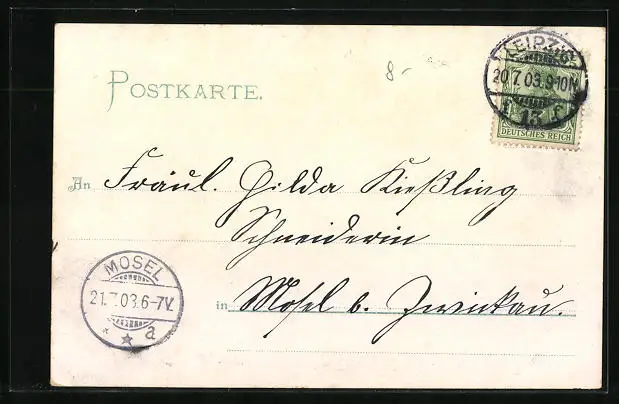 POSTKARTE.
8.-
LEIPZIG
20.7.03.9-10N
13
DEUTSCHES REICH
An Fräul. Hilda Kießling
Schneiderin
in Mosel b. Zwickau.
MOSEL
21.7.03.6-7V.
* * a